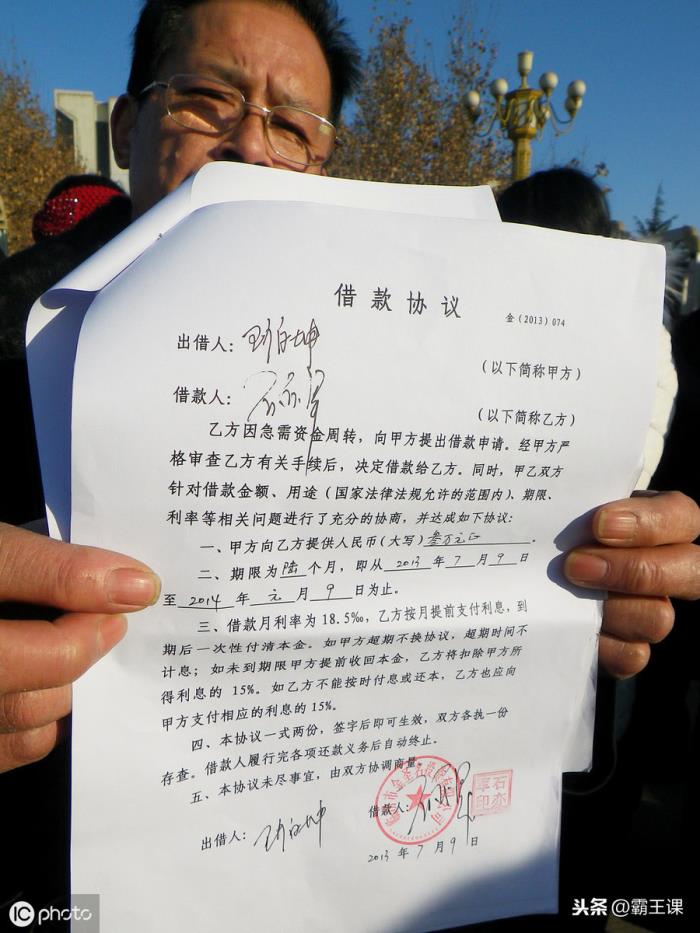 借款协议
金(2013)074
出借人：
(以下简称甲方)
借款人：
(以下简称乙方)
乙方因急需资金周转，向甲方提出借款申请。经甲方严
格审查乙方有关手续后，决定借款给乙方。同时，甲乙双方
针对借款金额、用途（国家法律法规允许的范围内）、期限、
利率等相关问题进行了充分的协商，并达成如下协议：
一、甲方向乙方提供人民币(大写) 叁万元正。
二、期限为陆个月，即从 2013 年 7 月 9 日
至 2014 年 元 月 9 日为止。
三、借款月利率为18.5‰，乙方按月提前支付利息，到
期后一次性付清本金。如甲方超期不换协议，超期时间不
计息；如未到期限甲方提前收回本金，乙方将扣除甲方所
得利息的 15%。如乙方不能按时付息或还本，乙方也应向
甲方支付相应的利息的15%。
四、本协议一式两份，签字后即可生效，双方各执一份
存查。借款人履行完各项还款义务后自动终止。
五、本协议未尽事宜，由双方协调商量。
出借人：
借款人：
2013 年 7 月 9 日
IC photo
头条@霸王课